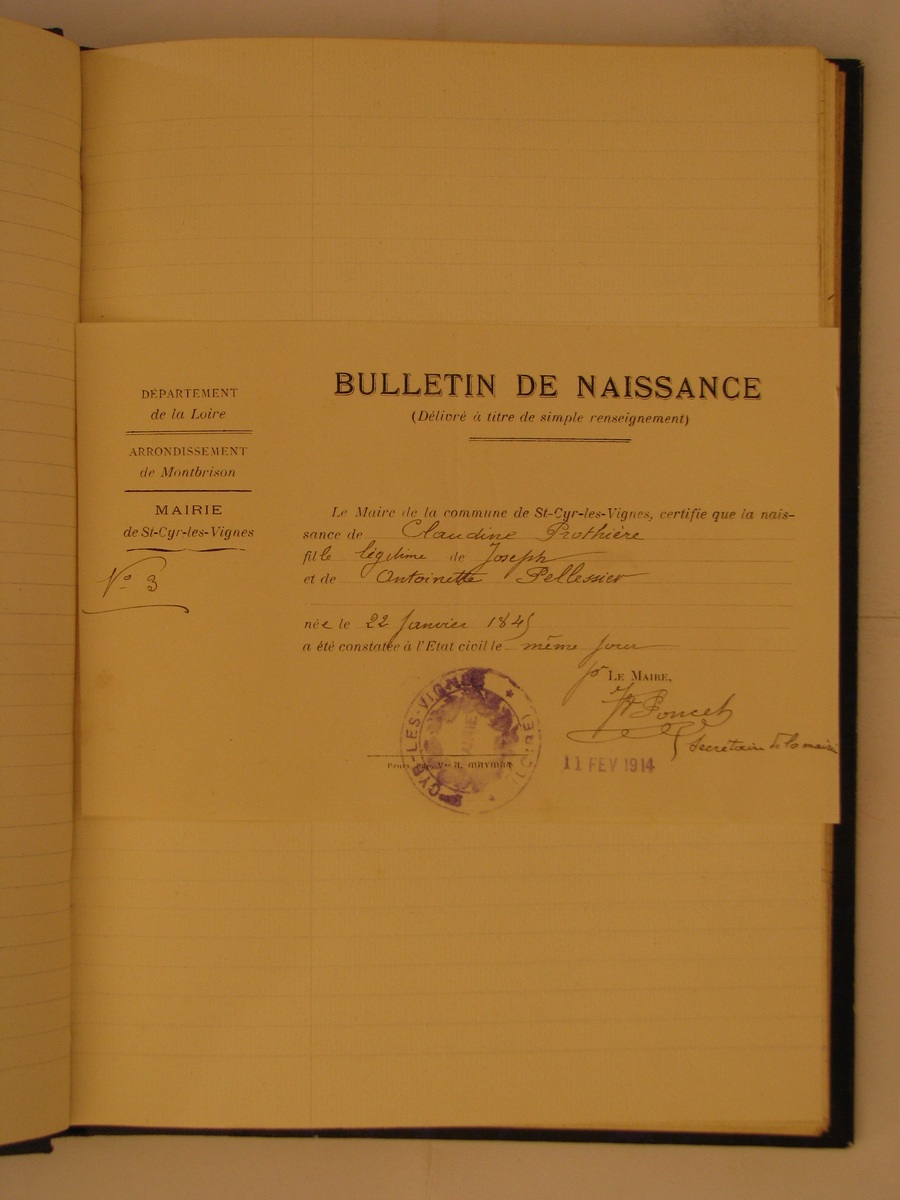 DÉPARTEMENT
de la Loire
ARRONDISSEMENT
de Montbrison
MAIRIE
de St-Cyr-les-Vignes
N° 3
BULLETIN DE NAISSANCE
(Délivré à titre de simple renseignement)
Le Maire de la commune de St-Cyr-les-Vignes, certifie que la nais-
sance de Claudine Prothière
fille légitime de Joseph
et de Antoinette Pellessier
née le 22 Janvier 1845
a été constatée à l'Etat civil le même jour
pr LE MAIRE,
Poncet
Secrétaire de la mairie
CYR-LES-VIGNES
11 FEV 1914